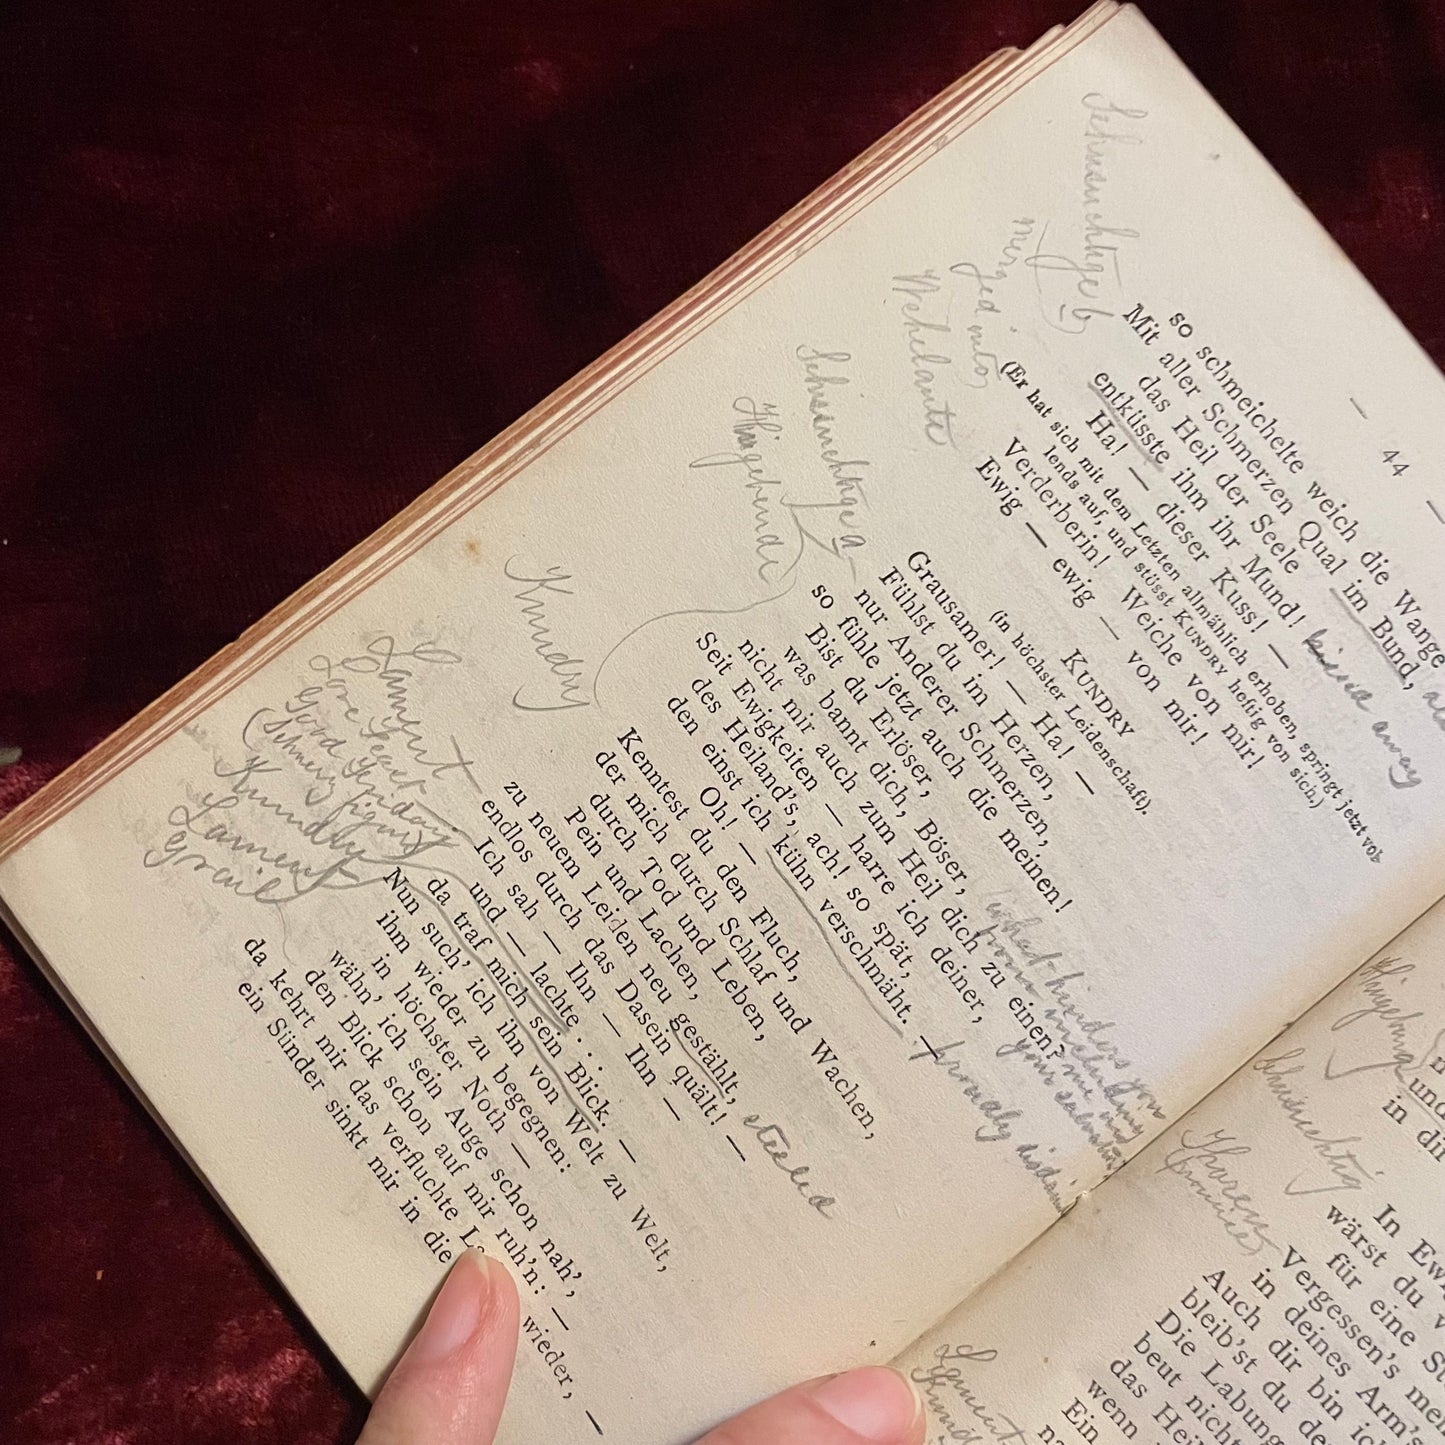 — 44 —
so schmeichelte weich die Wange
Mit aller Schmerzen Qual im Bund,
das Heil der Seele
entküsste ihm ihr Mund!
Ha! — dieser Kuss! —
Verderberin! Weiche von mir!
Ewig — ewig — von mir!
(Er hat sich mit dem Letzten allmählich erhoben, springt jetzt vol-
lends auf, und stösst KUNDRY heftig von sich.)
KUNDRY
(in höchster Leidenschaft).
Grausamer! — Ha! —
Fühlst du im Herzen,
nur Anderer Schmerzen,
so fühle jetzt auch die meinen!
Bist du Erlöser,
was bannt dich, Böser,
nicht mir auch zum Heil dich zu einen?
Seit Ewigkeiten — harre ich deiner,
des Heiland's, ach! so spät,
den einst ich kühn verschmäht. —
Oh! —
Kenntest du den Fluch,
der mich durch Schlaf und Wachen,
durch Tod und Leben,
Pein und Lachen,
zu neuem Leiden neu gestählt,
endlos durch das Dasein quält! —
Ich sah — Ihn — Ihn —
und — lachte . . .
da traf mich sein Blick. —
Nun such' ich ihn von Welt zu Welt,
ihm wieder zu begegnen:
in höchster Noth —
wähn' ich sein Auge schon nah',
den Blick schon auf mir ruh'n: —
da kehrt mir das verfluchte
wieder, —
ein Sünder sinkt mir in die
Sehnsuchtige b
merged into
Wehelaute
away
Sehnsuchtige a
Hingebende
what hinders you
your
proudly
Kundry
steeled
Lament
Love Feast
Good Friday
(Schmerz figur)
Kundry
Lament
Grail
Hingebung
Sehnsuchtig
und
in dir
In
wärst du
für eine
Vergessen's
in deines Arm's
Auch dir bin ich
bleib'st du
Die Labung
beut nicht
das
wenn
Ein
Lament